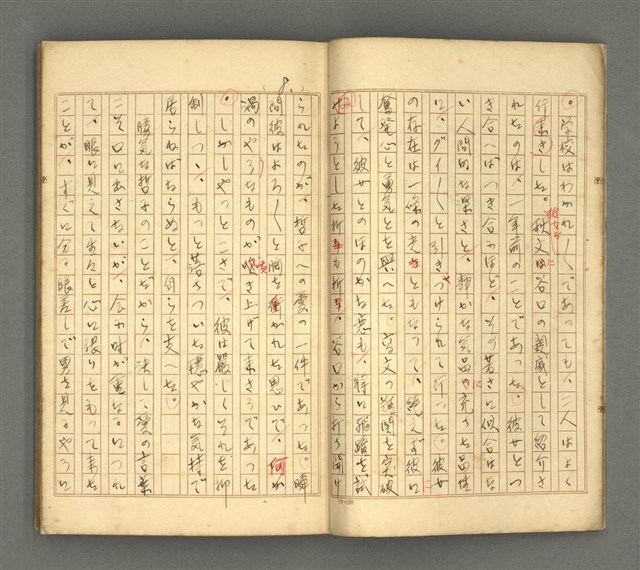 。学校はわかれ〳〵であつても、二人はよく
行来きした。秋文に彼女が谷口の親戚として紹介さ
れたのは、一年前のことであつた。彼女とつ
き合へばつき合ふほど、その若さに似合はな
い人間的な深さと、静かな気品に充ちた品性
に、グイ〳〵と引きつけられて行つた。彼女
の存在は一條の光ともなつて、絶えず彼に
奮発心と勇気とを與へた。高文の難関を突破
して、彼女とのほのかな恋も、特に飛躍を試
みようとした折も折、谷口から打ち開け
8.
られたのが、哲子への愛の一件であつた。瞬
間彼はよろ〳〵と胸を衝かれた思ひで、何か
渦のやうなものが噴き上げて来さうであつた
。しかしやつとこさで、彼は嚴しくそれを抑
制しつゝ、もつと落ちついた穏やかな気持で
居らねばならぬと、自らを支へた。
勝気な哲子のことだから、決して愛の言葉
こそ口に出さないが、会ふ時が重なるにつれ
て、眼に見えて生々と心に張りをもつて来た
ことが、すぐに分る眼差しで男を見るやうに